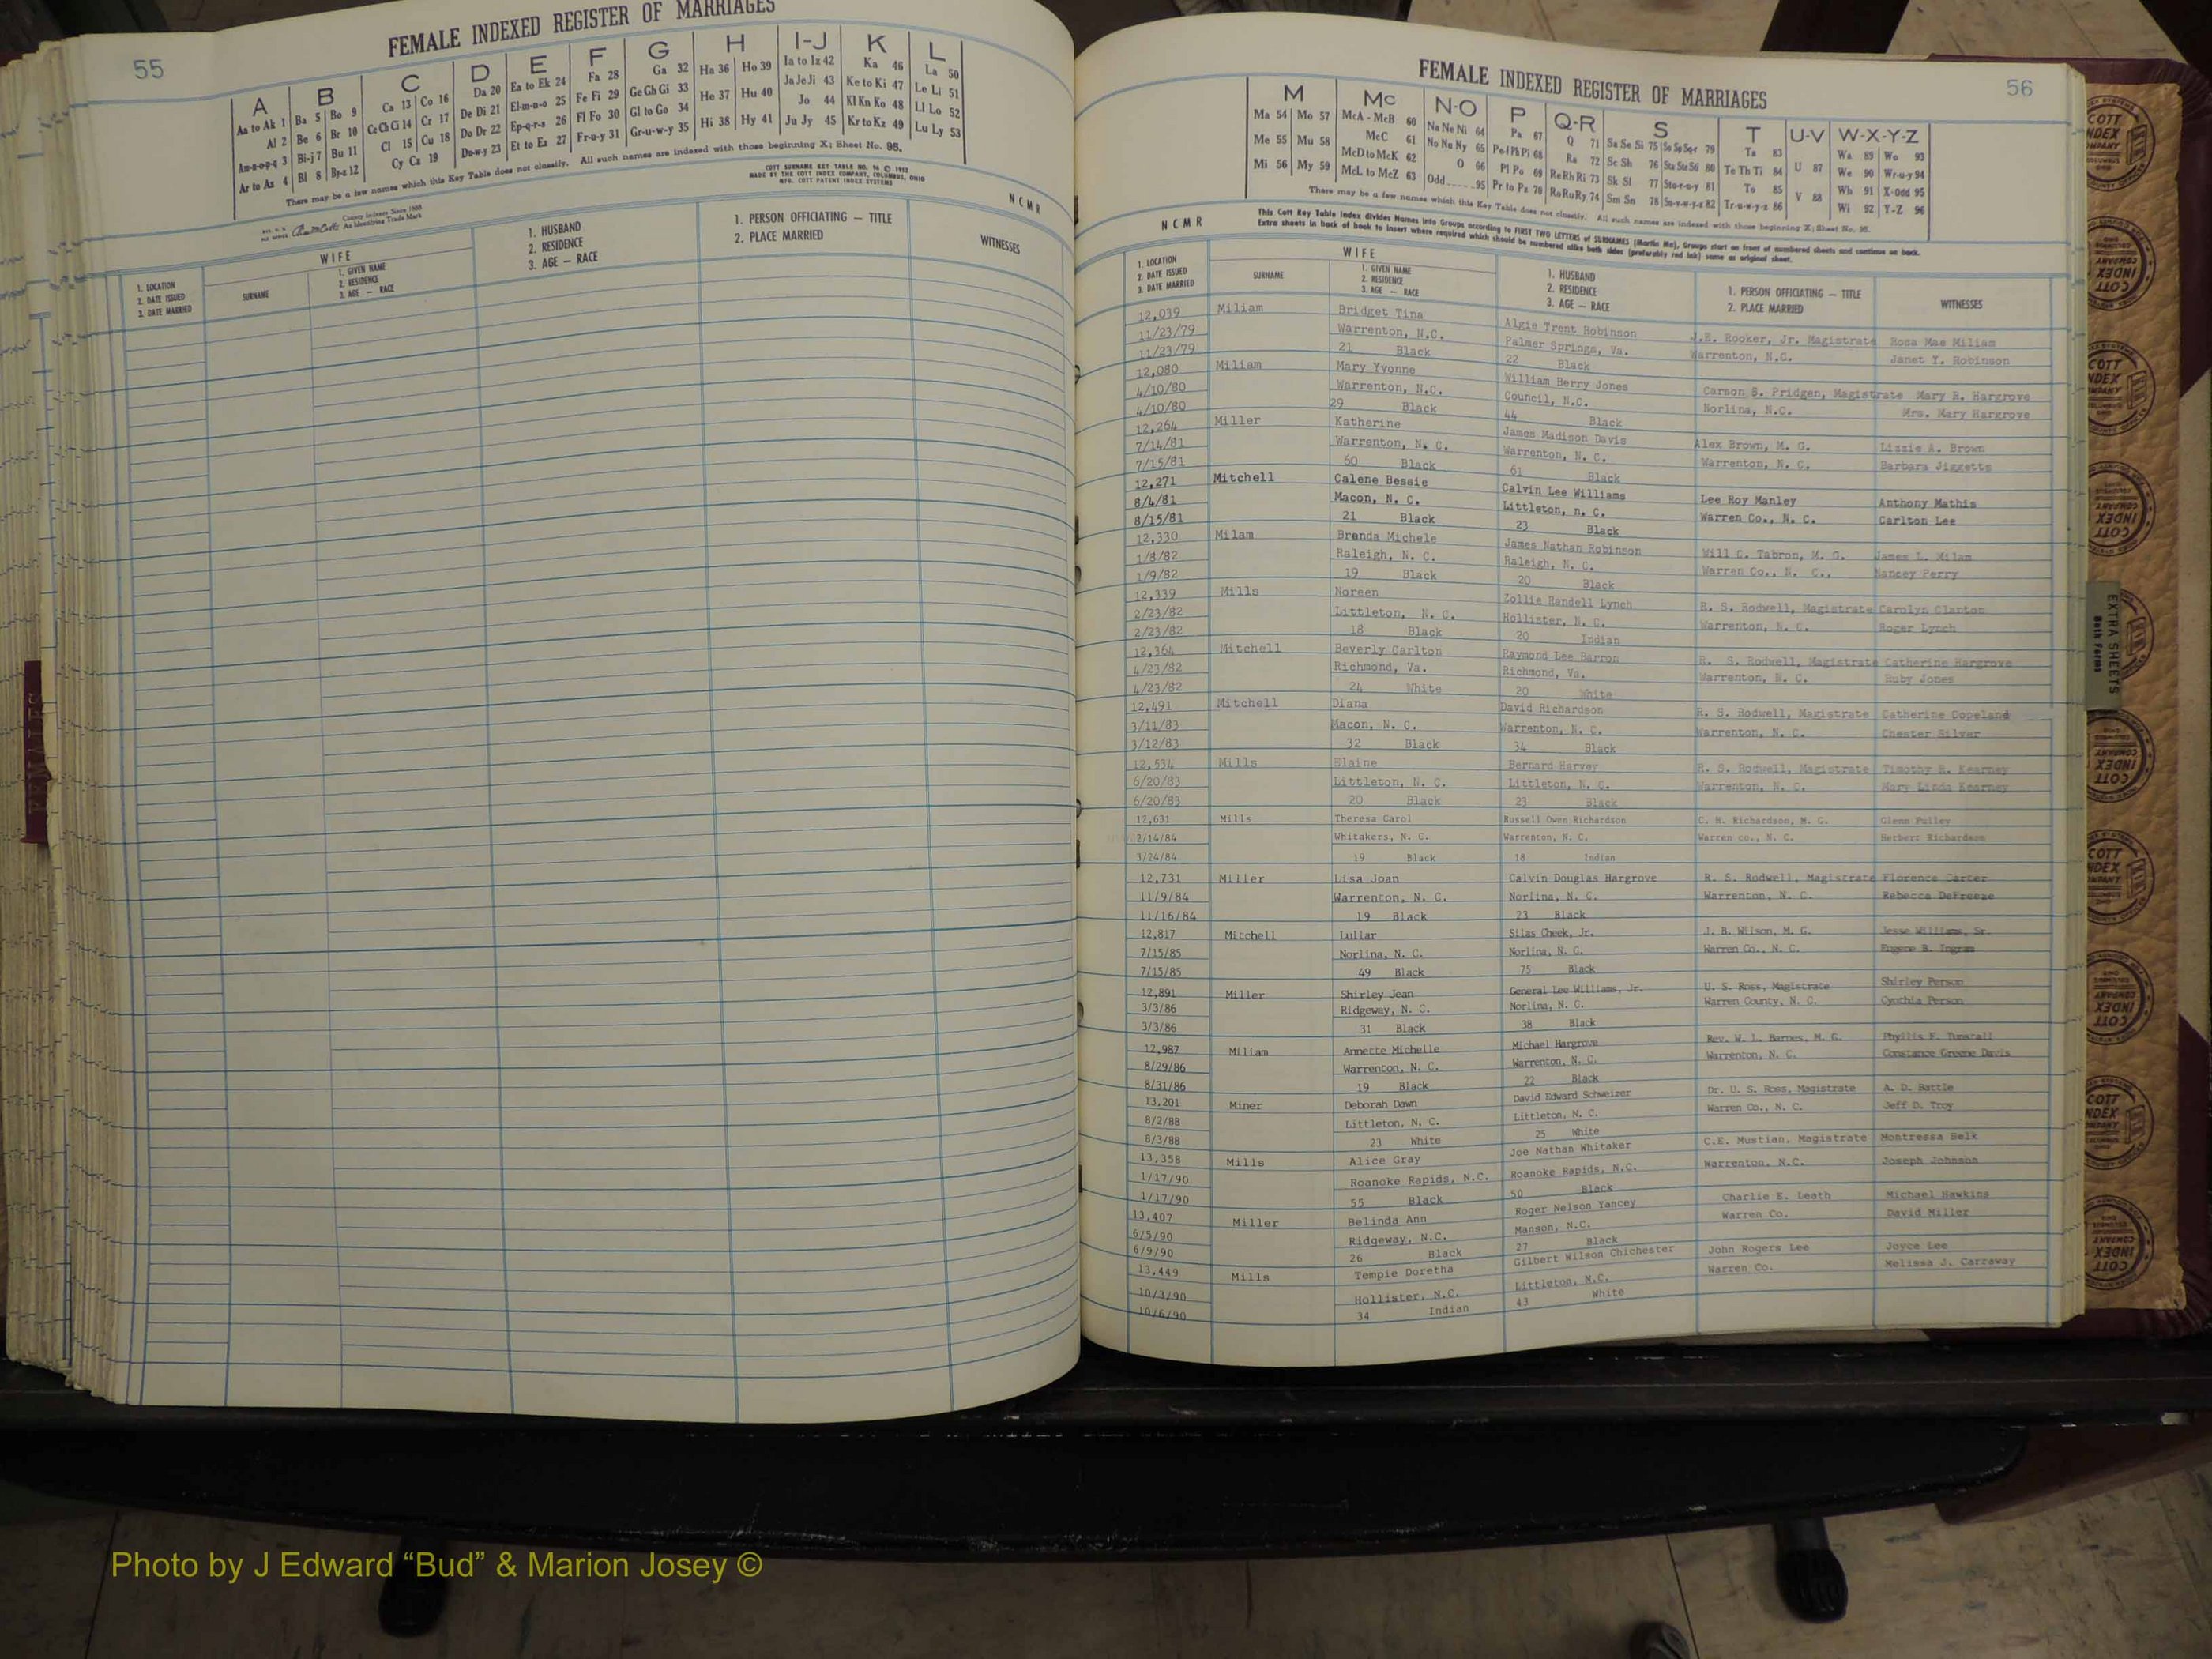 55
FEMALE INDEXED REGISTER OF MARRIAGES
A B C D E F G H I-J K L
Aa to Ak 1 Ba 5 Bo 9 Ca 13 Co 16 Da 20 Ea to Ek 24 Fa 28 Ga 32 Ha 36 Ho 39 Ia to Iz 42 Ka 46 La 50
Al 2 Be 6 Br 10 Ce Ch Ci 14 Cr 17 De Di 21 El-m-n-o 25 Fe Fi 29 Ge Gh Gi 33 He 37 Hu 40 Ja Je Ji 43 Ke to Ki 47 Le Li 51
Am-n-o-p-q 3 Bi-j 7 Bu 11 Cl 15 Cu 18 Do Dr 22 Ep-q-r-s 26 Fl Fo 30 Gl to Go 34 Hi 38 Hy 41 Jo 44 Kl Kn Ko 48 Ll Lo 52
Ar to Az 4 Bl 8 By-z 12 Cy Cz 19 Du-w-y 23 Et to Ez 27 Fr-u-y 31 Gr-u-w-y 35 Ju Jy 45 Kr to Kz 49 Lu Ly 53
There may be a few names which this Key Table does not classify. All such names are indexed with those beginning X; Sheet No. 98.
COTT SURNAME KEY TABLE NO. 96 © 1952
MADE BY THE COTT INDEX COMPANY, COLUMBUS, OHIO
MFG. COTT PATENT INDEX SYSTEMS
County Indexes Since 1888
An Identifying Trade Mark
N C M R
WIFE
1. LOCATION
2. DATE ISSUED
3. DATE MARRIED
SURNAME
1. GIVEN NAME
2. RESIDENCE
3. AGE — RACE
1. HUSBAND
2. RESIDENCE
3. AGE — RACE
1. PERSON OFFICIATING — TITLE
2. PLACE MARRIED
WITNESSES
FEMALES
56
FEMALE INDEXED REGISTER OF MARRIAGES
M Mc N-O P Q-R S T U-V W-X-Y-Z
Ma 54 Mo 57 McA - McB 60 Na Ne Ni 64 Pa 67 Q 71 Sa Se Si 75 So Sp Sq-r 79 Ta 83 U 87 Wa 89 Wo 93
Me 55 Mu 58 McC 61 No Nu Ny 65 Pe-f Ph Pi 68 Ra 72 Sc Sh 76 Sta Ste Sti 80 Te Th Ti 84 We 90 Wr-u-y 94
Mi 56 My 59 McD to McK 62 O 66 Pl Po 69 Re Rh Ri 73 Sk Sl 77 Sto-r-u-y 81 To 85 V 88 Wh 91 X-Odd 95
McL to McZ 63 Odd 95 Pr to Pz 70 Ro Ru Ry 74 Sm Sn 78 Su-v-w-y-z 82 Tr-u-w-y-z 86 Wi 92 Y-Z 96
There may be a few names which this Key Table does not classify. All such names are indexed with those beginning X; Sheet No. 98.
This Cott Key Table Index divides Names into Groups according to FIRST TWO LETTERS of SURNAMES (Martin Ma). Groups start on front of numbered sheets and continue on back.
Extra sheets in back of book to insert where required which should be numbered alike both sides (preferably red ink) same as original sheet.
N C M R
WIFE
1. LOCATION
2. DATE ISSUED
3. DATE MARRIED
SURNAME
1. GIVEN NAME
2. RESIDENCE
3. AGE — RACE
1. HUSBAND
2. RESIDENCE
3. AGE — RACE
1. PERSON OFFICIATING — TITLE
2. PLACE MARRIED
WITNESSES
12,039 Miliam Bridget Tina Algie Trent Robinson J.E. Rooker, Jr. Magistrate Rosa Mae Miliam
11/23/79 Warrenton, N.C. Palmer Springs, Va. Warrenton, N.C. Janet Y. Robinson
11/23/79 21 Black 22 Black
12,080 Miliam Mary Yvonne William Berry Jones Carson S. Pridgen, Magistrate Mary R. Hargrove
4/10/80 Warrenton, N.C. Council, N.C. Norlina, N.C. Mrs. Mary Hargrove
4/10/80 29 Black 44 Black
12,264 Miller Katherine James Madison Davis Alex Brown, M. G. Lizzie A. Brown
7/14/81 Warrenton, N. C. Warrenton, N. C. Warrenton, N. C. Barbara Jiggetts
7/15/81 60 Black 61 Black
12,271 Mitchell Calene Bessie Calvin Lee Williams Lee Roy Manley Anthony Mathis
8/4/81 Macon, N. C. Littleton, n. C. Warren Co., N. C. Carlton Lee
8/15/81 21 Black 23 Black
12,330 Milam Brenda Michele James Nathan Robinson Will C. Tabron, M. G. James L. Milam
1/8/82 Raleigh, N. C. Raleigh, N. C. Warren Co., N. C., Nancey Perry
1/9/82 19 Black 20 Black
12,339 Mills Noreen Zollie Randell Lynch R. S. Rodwell, Magistrate Carolyn Clanton
2/23/82 Littleton, N. C. Hollister, N. C. Warrenton, N. C. Roger Lynch
2/23/82 18 Black 20 Indian
12,364 Mitchell Beverly Carlton Raymond Lee Barron R. S. Rodwell, Magistrate Catherine Hargrove
4/23/82 Richmond, Va. Richmond, Va. Warrenton, N. C. Ruby Jones
4/23/82 24 White 20 White
12,491 Mitchell Diana David Richardson R. S. Rodwell, Magistrate Catherine Copeland
3/11/83 Macon, N. C. Warrenton, N. C. Warrenton, N. C. Chester Silver
3/12/83 32 Black 34 Black
12,534 Mills Elaine Bernard Harvey R. S. Rodwell, Magistrate Timothy R. Kearney
6/20/83 Littleton, N. C. Littleton, N. C. Warrenton, N. C. Mary Linda Kearney
6/20/83 20 Black 23 Black
12,631 Mills Theresa Carol Russell Owen Richardson C. H. Richardson, M. G. Glenn Pulley
2/14/84 Whitakers, N. C. Warrenton, N. C. Warren co., N. C. Herbert Richardson
3/24/84 19 Black 18 Indian
12,731 Miller Lisa Joan Calvin Douglas Hargrove R. S. Rodwell, Magistrate Florence Carter
11/9/84 Warrenton, N. C. Norlina, N. C. Warrenton, N. C. Rebecca DeFreeze
11/16/84 19 Black 23 Black
12,817 Mitchell Lullar Silas Cheek, Jr. J. B. Wilson, M. G. Jesse Williams, Sr.
7/15/85 Norlina, N. C. Norlina, N. C. Warren Co., N. C. Eugene B. Ingram
7/15/85 49 Black 75 Black
12,891 Miller Shirley Jean General Lee Williams, Jr. U. S. Ross, Magistrate Shirley Person
3/3/86 Ridgeway, N. C. Norlina, N. C. Warren County, N. C. Cynthia Person
3/3/86 31 Black 38 Black
12,987 Miliam Annette Michelle Michael Hargrove Rev. W. L. Barnes, M. G. Phyllis F. Tunstall
8/29/86 Warrenton, N. C. Warrenton, N. C. Warrenton, N. C. Constance Greene Davis
8/31/86 19 Black 22 Black
13,201 Miner Deborah Dawn David Edward Schweizer Dr. U. S. Ross, Magistrate A. D. Battle
8/2/88 Littleton, N. C. Littleton, N. C. Warren Co., N. C. Jeff D. Troy
8/3/88 23 White 25 White
13,358 Mills Alice Gray Joe Nathan Whitaker C.E. Mustian, Magistrate Montressa Belk
1/17/90 Roanoke Rapids, N.C. Roanoke Rapids, N.C. Warrenton, N.C. Joseph Johnson
1/17/90 55 Black 50 Black
13,407 Miller Belinda Ann Roger Nelson Yancey Charlie E. Leath Michael Hawkins
6/5/90 Ridgeway, N.C. Manson, N.C. Warren Co. David Miller
6/9/90 26 Black 27 Black
13,449 Mills Tempie Doretha Gilbert Wilson Chichester John Rogers Lee Joyce Lee
10/3/90 Hollister, N.C. Littleton, N.C. Warren Co. Melissa J. Carraway
10/6/90 34 Indian 43 White
EXTRA SHEETS
Both Forms
COTT
INDEX
COMPANY
Photo by J Edward “Bud” & Marion Josey ©